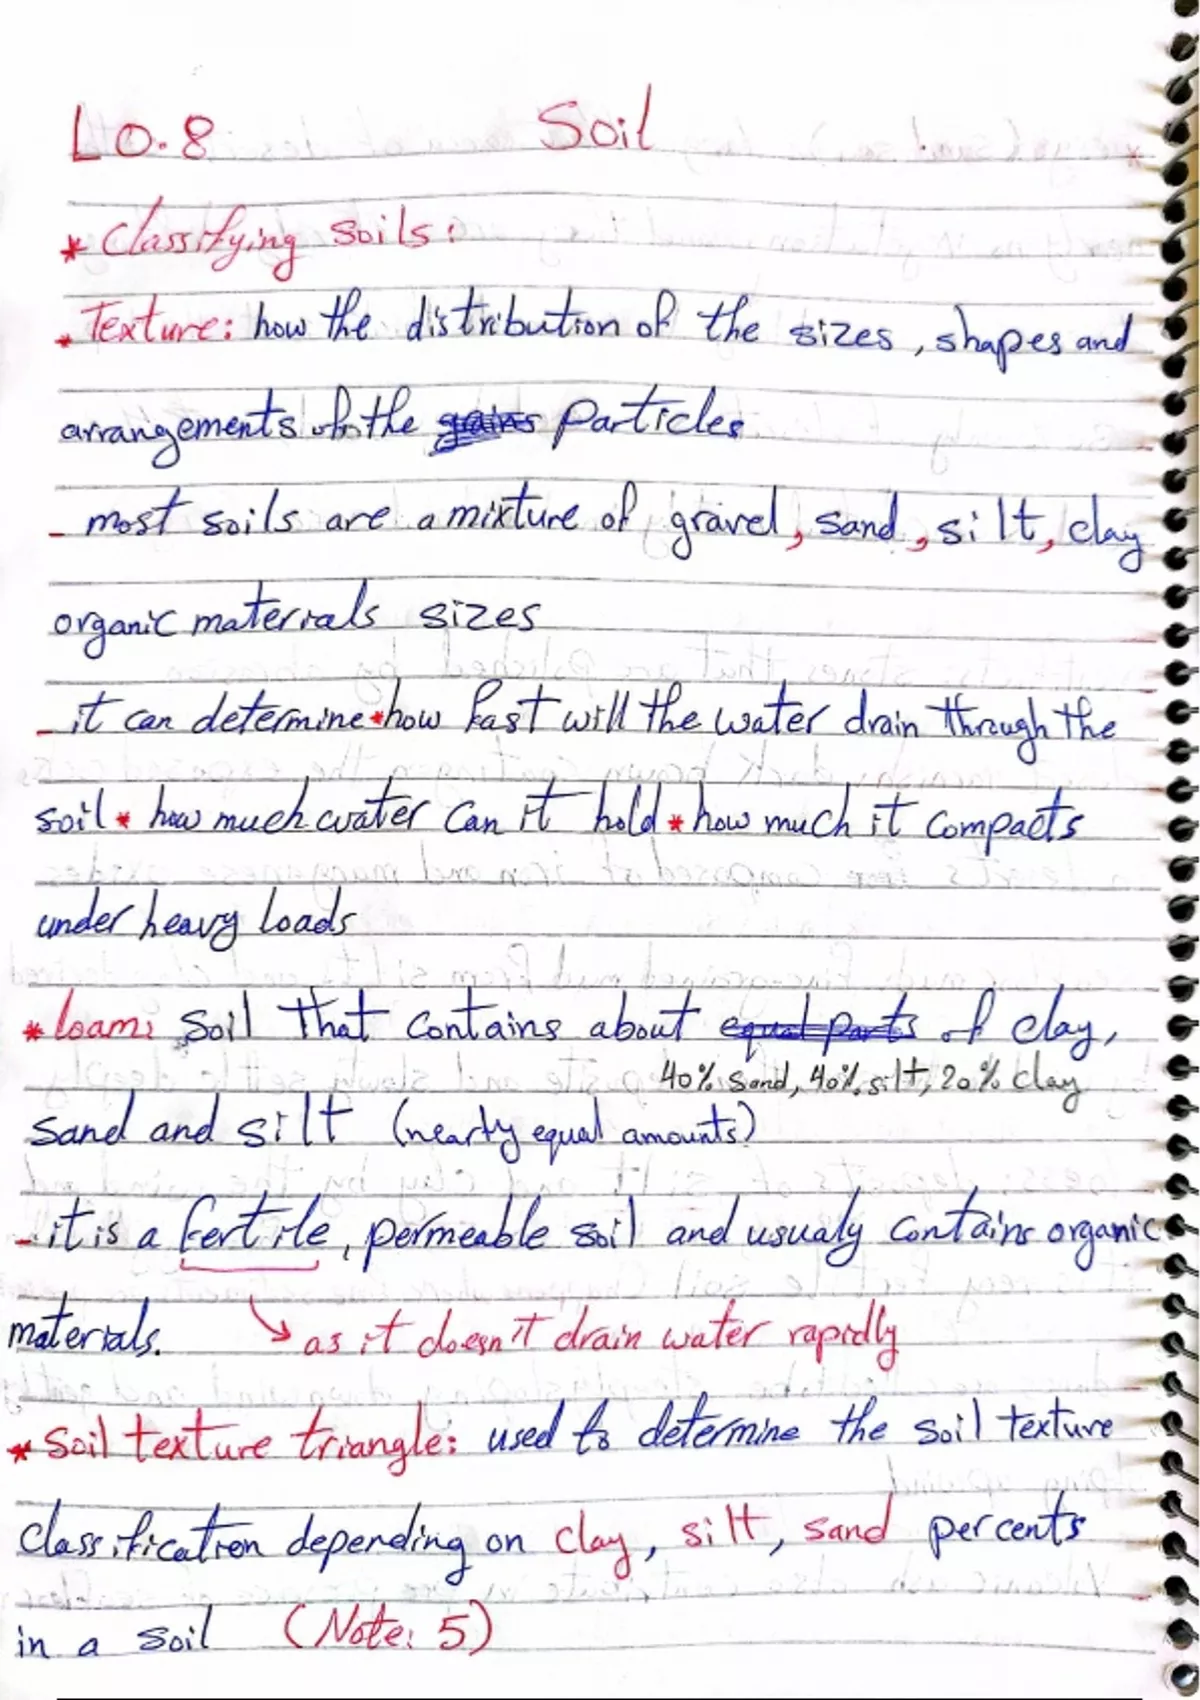 LO.8 Soil
* Classifying soils:
. Texture: how the distribution of the sizes, shapes and
arrangements of the gains particles
- most soils are a mixture of gravel, sand, silt, clay
organic materials sizes
- it can determine * how fast will the water drain through the
soil * how much water can it hold * how much it compacts
under heavy loads
* loam: soil that contains about equal parts of clay,
40% sand, 40% silt, 20% clay
sand and silt (nearly equal amounts)
- it is a fertile, permeable soil and usualy contains organic
materials. as it doesn't drain water rapidly
* soil texture triangle: used to determine the soil texture
classification depending on clay, silt, sand percents
in a soil (Note: 5)